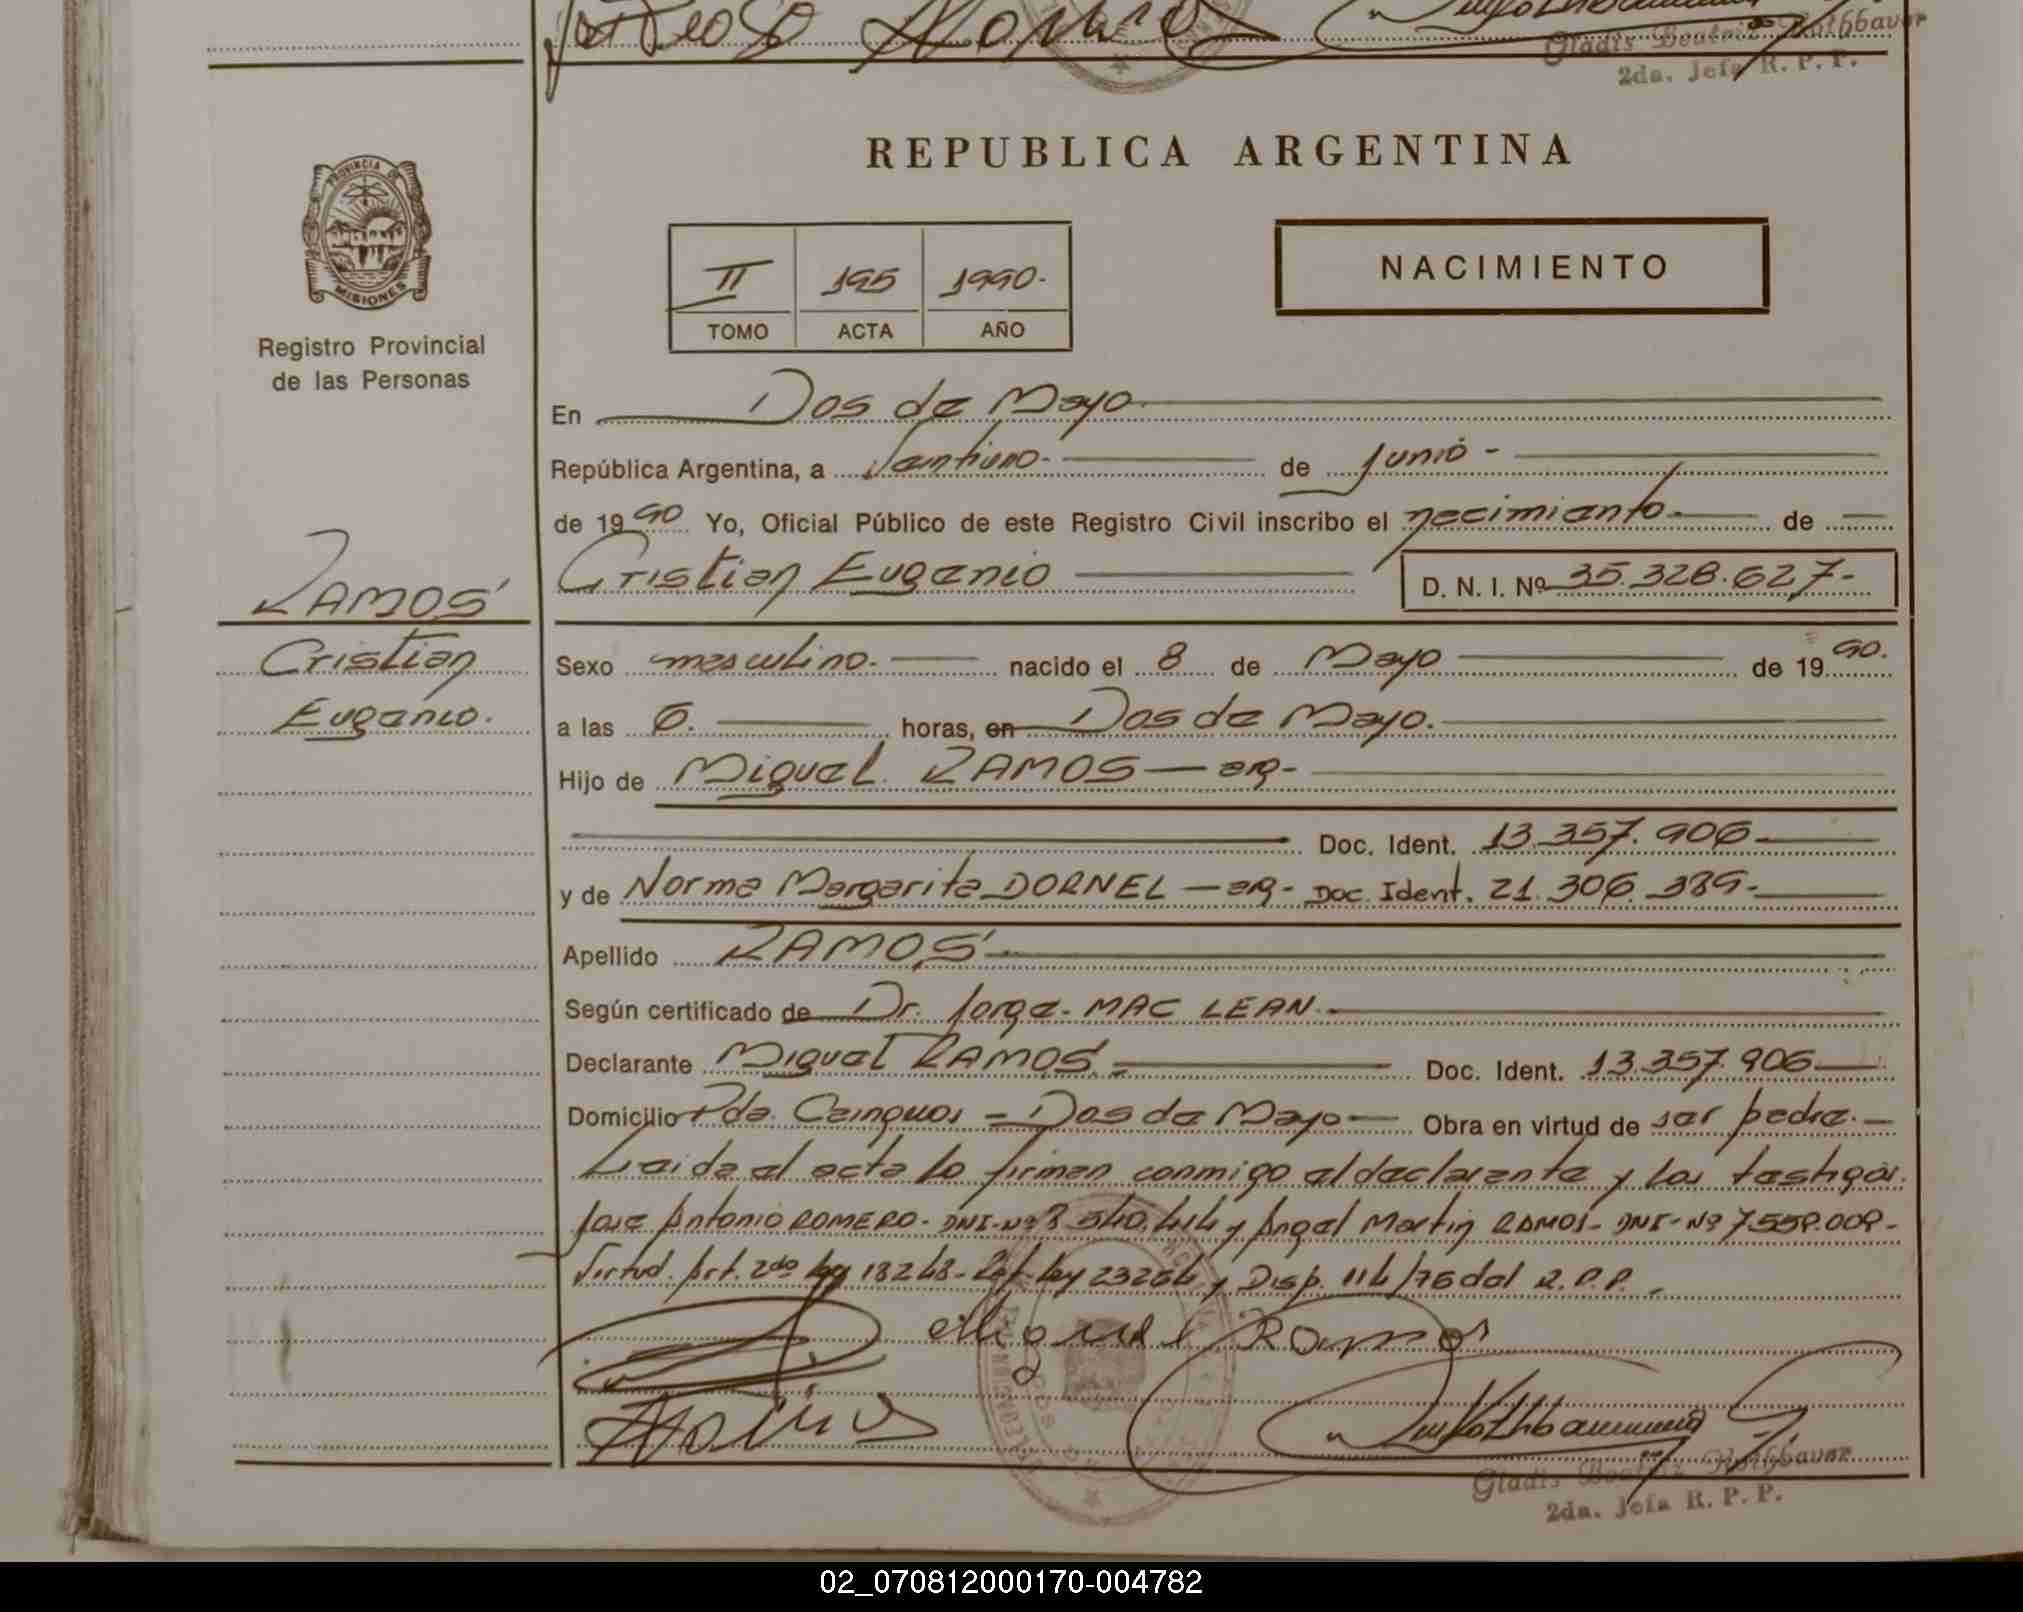 Gladis Beatriz Rothbauer
2da. Jefa R. P. P.
PROVINCIA DE
MISIONES
Registro Provincial
de las Personas
REPUBLICA ARGENTINA
II 195 1990.
TOMO ACTA AÑO
NACIMIENTO
En Dos de Mayo
República Argentina, a Veintiuno - de Junio -
de 1990 Yo, Oficial Público de este Registro Civil inscribo el nacimiento de
Cristian Eugenio D. N. I. Nº 35.328.627-
RAMOS
Cristian
Eugenio.
Sexo masculino. nacido el 8 de Mayo de 1990.
a las 6. horas, en Dos de Mayo.
Hijo de Miguel RAMOS - arg -
Doc. Ident. 13.357.906
y de Norma Margarita DORNEL - arg - Doc. Ident. 21.306.389-
Apellido RAMOS
Según certificado de Dr. Jorge - MAC LEAN.
Declarante Miguel RAMOS. Doc. Ident. 13.357.906
Domicilio Pda. Cainguas - Dos de Mayo Obra en virtud de ser padre.
Leida el acta lo firman conmigo el declarante y los testigos.
Jose Antonio ROMERO - DNI-Nº 8.540.414 y Angel Martin RAMOS - DNI-Nº 7.559.009-
Virtud. Art. 2do ley 18248 - Ref. ley 23264 y Disp. 114/76 del R.P.P.
Miguel Ramos
Gladis Beatriz Rothbauer
2da. Jefa R. P. P.
02_070812000170-004782